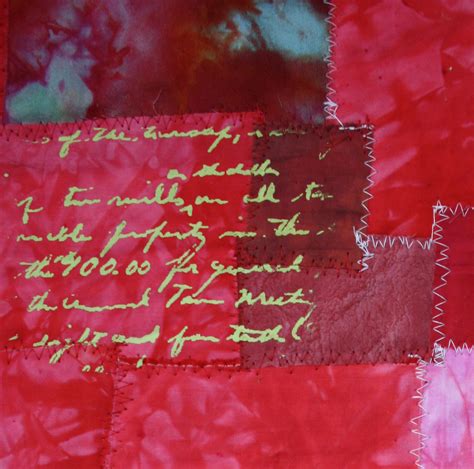 of the township,
on the dollar
of two mills, on all
property in the
the $100.00 for general
the annual Town Meeting
eight and four tenth